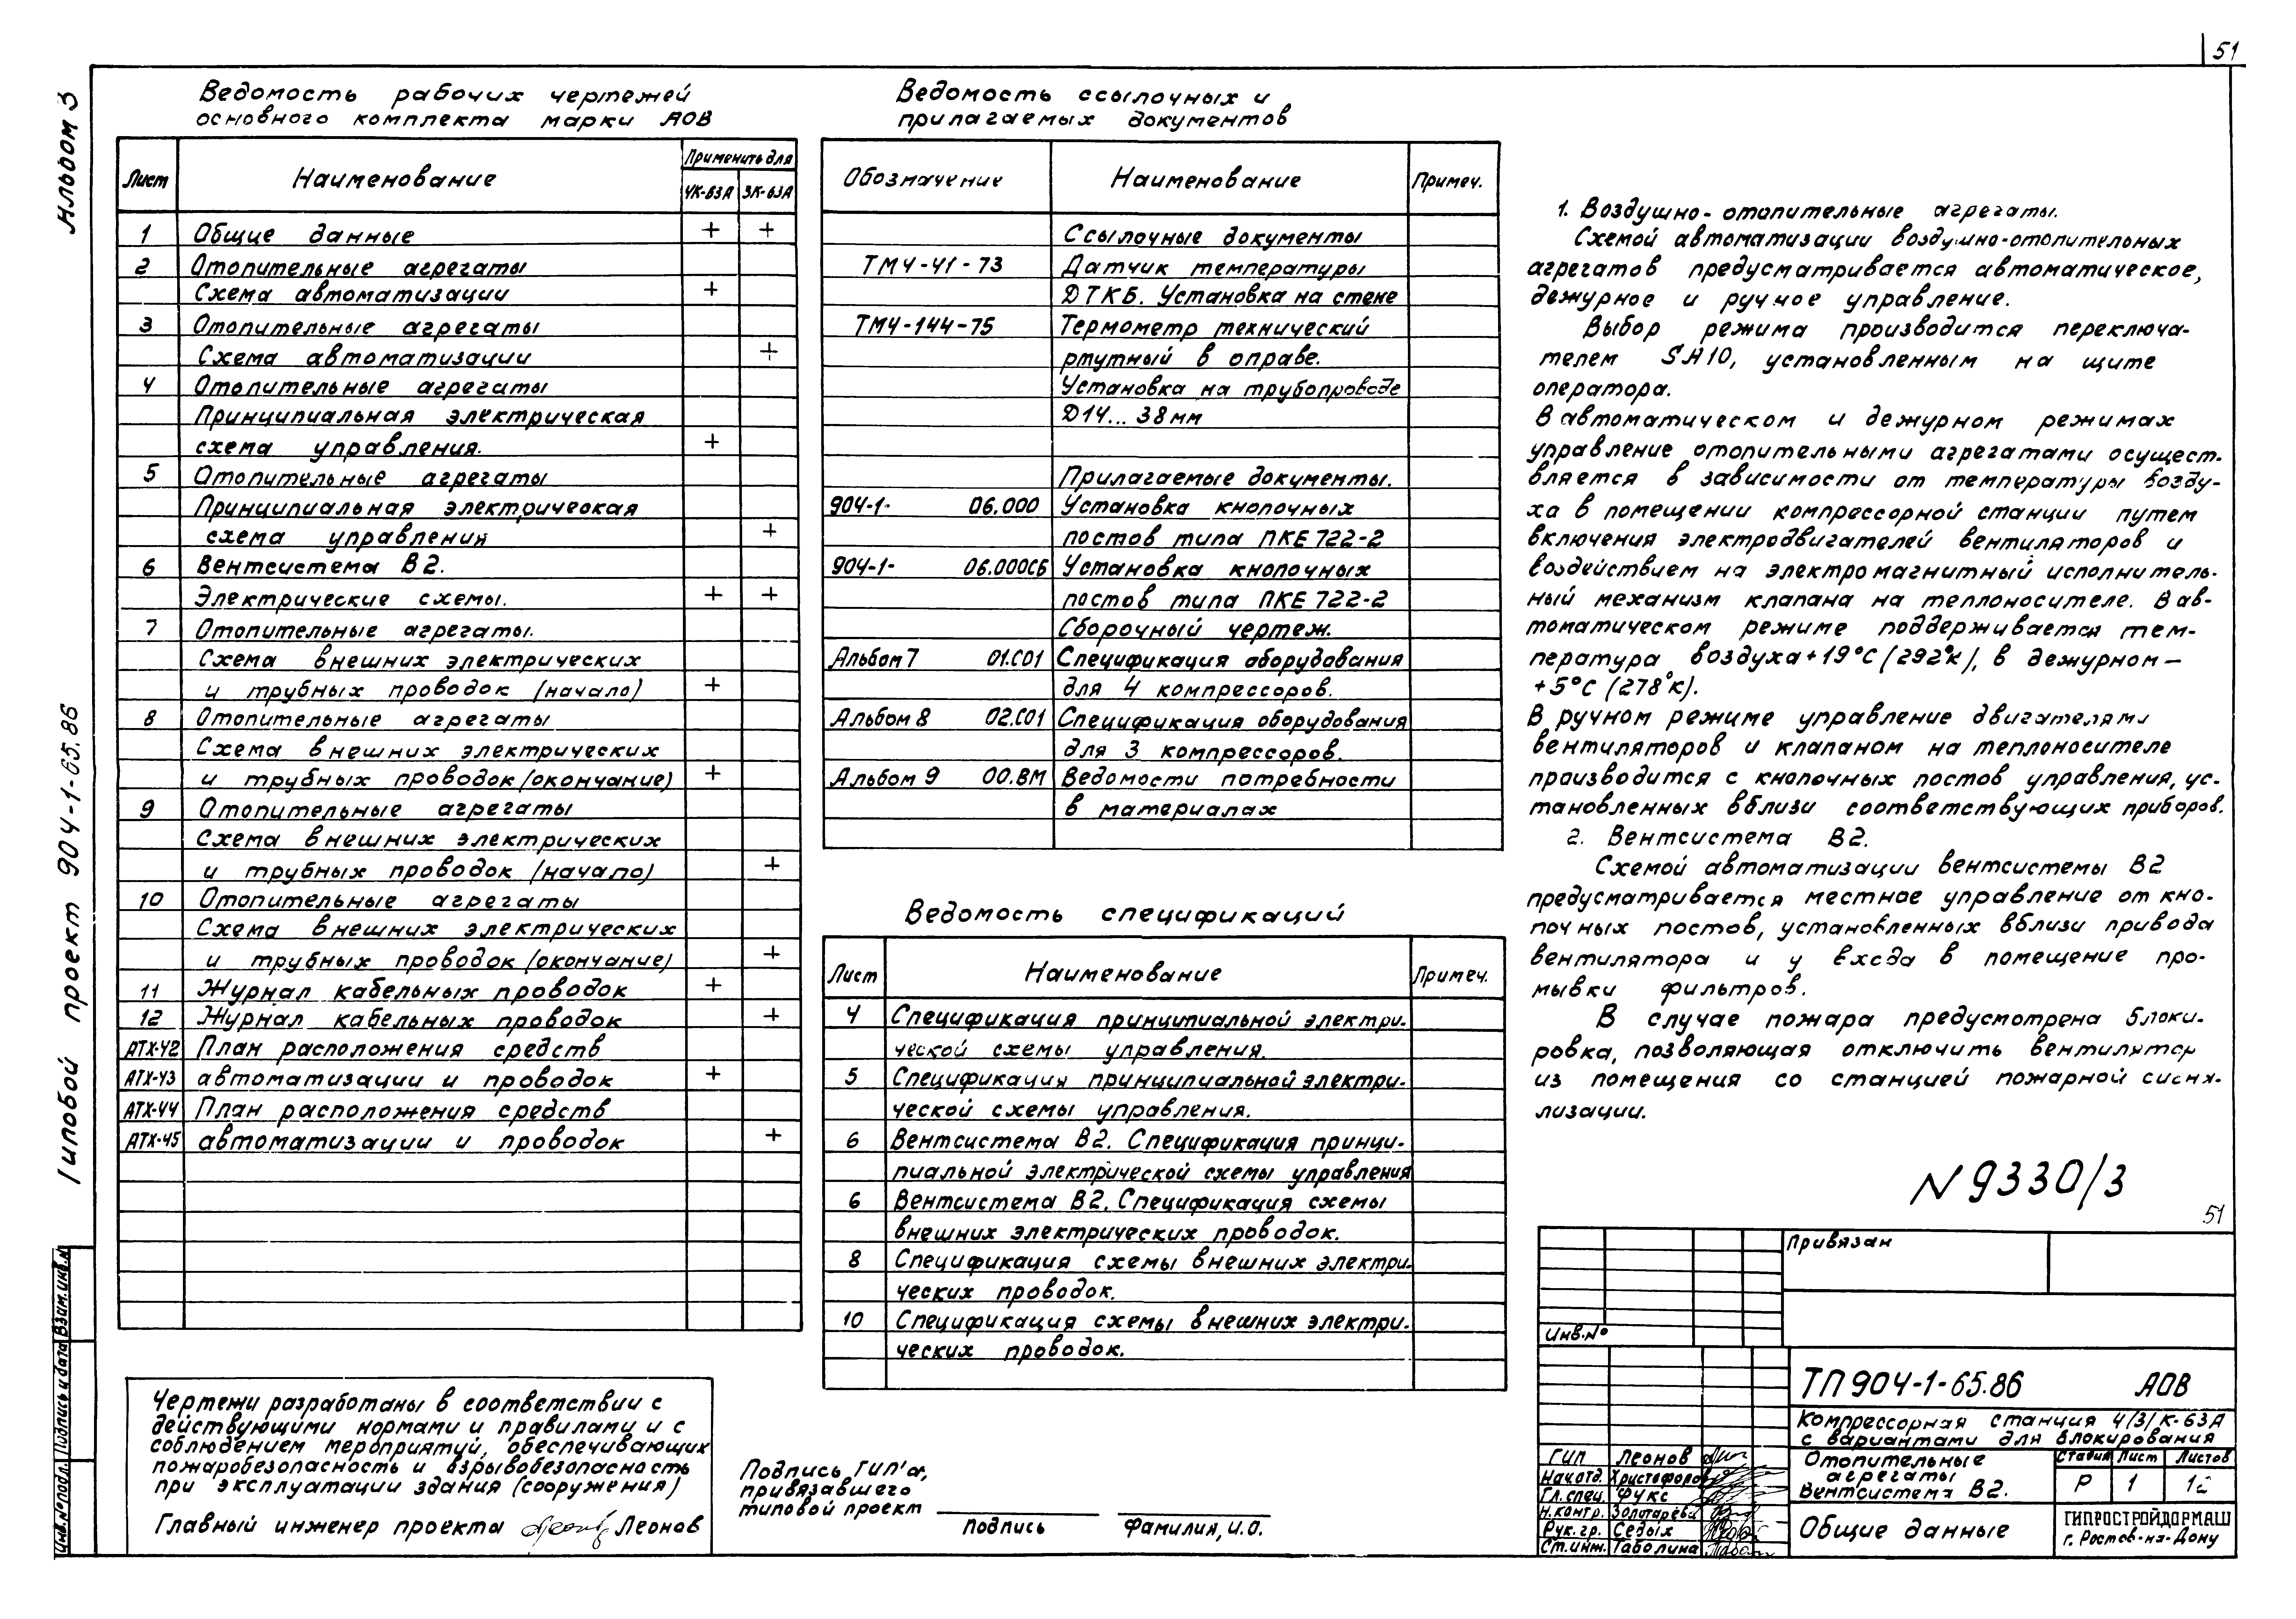 51
Альбом 3
Типовой проект 904-1-65.86
Инв.№подл. Подпись и дата Взам.инв.№
Ведомость рабочих чертежей
основного комплекта марки АОВ
Лист Наименование Применить для
4К-63А 3К-63А
1 Общие данные + +
2 Отопительные агрегаты
Схема автоматизации +
3 Отопительные агрегаты
Схема автоматизации +
4 Отопительные агрегаты
Принципиальная электрическая
схема управления. +
5 Отопительные агрегаты
Принципиальная электрическая
схема управления +
6 Вентсистема В2.
Электрические схемы. + +
7 Отопительные агрегаты.
Схема внешних электрических
и трубных проводок (начало) +
8 Отопительные агрегаты
Схема внешних электрических
и трубных проводок (окончание) +
9 Отопительные агрегаты
Схема внешних электрических
и трубных проводок (начало) +
10 Отопительные агрегаты
Схема внешних электрических
и трубных проводок (окончание) +
11 Журнал кабельных проводок +
12 Журнал кабельных проводок +
АТХ-42 План расположения средств
АТХ-43 автоматизации и проводок +
АТХ-44 План расположения средств
АТХ-45 автоматизации и проводок +
Чертежи разработаны в соответствии с
действующими нормами и правилами и с
соблюдением мероприятий, обеспечивающих
пожаробезопасность и взрывобезопасность
при эксплуатации здания (сооружения)
Главный инженер проекта Леонов
Ведомость ссылочных и
прилагаемых документов
Обозначение Наименование Примеч.
Ссылочные документы
ТМ4-41-73 Датчик температуры
ДТКБ. Установка на стене
ТМ4-144-75 Термометр технический
ртутный в оправе.
Установка на трубопроводе
Д14...38мм
Прилагаемые документы.
904-1- 06.000 Установка кнопочных
постов типа ПКЕ 722-2
904-1- 06.000СБ Установка кнопочных
постов типа ПКЕ 722-2
Сборочный чертеж.
Альбом 7 01.С01 Спецификация оборудования
для 4 компрессоров.
Альбом 8 02.С01 Спецификация оборудования
для 3 компрессоров.
Альбом 9 00.ВМ Ведомости потребности
в материалах
Ведомость спецификаций
Лист Наименование Примеч.
4 Спецификация принципиальной электри-
ческой схемы управления.
5 Спецификация принципиальной электри-
ческой схемы управления.
6 Вентсистема В2. Спецификация принци-
пиальной электрической схемы управления
6 Вентсистема В2. Спецификация схемы
внешних электрических проводок.
8 Спецификация схемы внешних электри-
ческих проводок.
10 Спецификация схемы внешних электри-
ческих проводок.
Подпись ГИП'а,
привязавшего
типовой проект
подпись фамилия, и.о.
1. Воздушно-отопительные агрегаты.
Схемой автоматизации воздушно-отопительных
агрегатов предусматривается автоматическое,
дежурное и ручное управление.
Выбор режима производится переключа-
телем SA10, установленным на щите
оператора.
В автоматическом и дежурном режимах
управление отопительными агрегатами осущест-
вляется в зависимости от температуры возду-
ха в помещении компрессорной станции путем
включения электродвигателей вентиляторов и
воздействием на электромагнитный исполнитель-
ный механизм клапана на теплоносителе. В ав-
томатическом режиме поддерживается тем-
пература воздуха +19°С (292°К), в дежурном —
+5°С (278°К).
В ручном режиме управление двигателями
вентиляторов и клапаном на теплоносителе
производится с кнопочных постов управления, ус-
тановленных вблизи соответствующих приборов.
2. Вентсистема В2.
Схемой автоматизации вентсистемы В2
предусматривается местное управление от кно-
почных постов, установленных вблизи привода
вентилятора и у входа в помещение про-
мывки фильтров.
В случае пожара предусмотрена блоки-
ровка, позволяющая отключить вентилятор
из помещения со станцией пожарной сигна-
лизации.
N 9330/3
51
Привязан
Инв.№
ТП 904-1-65.86 АОВ
Компрессорная станция 4/3/К-63А
с вариантами для блокирования
ГИП Леонов
Нач.отд. Христофоров
Гл.спец. Фукс
Н.контр. Золотарева
Рук.гр. Седых
Ст.инж. Таболина
Отопительные
агрегаты
Вентсистема В2.
Стадия Лист Листов
Р 1 12
Общие данные
ГИПРОСТРОЙДОРМАШ
г. Ростов-на-Дону